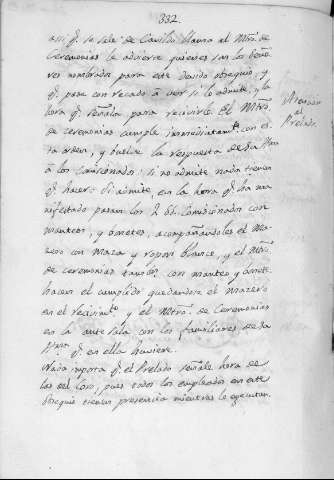 332
assi q.e se sale de Cavildo llama al Mtro. de
Ceremonias le advierte quienes son los
nombrado para este devido obsequio, y
q.e pase con recado a ver si lo admite, y la
hora q.e señala para recivirle el Mtro.
de ceremonias cumple inmediatam.te con es-
ta orden, y buelve la respuesta de
a los comisionados: si no admite nada tienen
q.e hacer: si admite, en la hora q.e ha ma-
nifestado pasan los 2 Comisionados con
manteos, y bonetes, acompañandoles el Ma-
zero con Maza y ropon blanco, y el Mtro.
de ceremonias tambien con manteo y bonete
hacen el cumplido quedandose el mazero
en el recivim.to y el Mtro. de Ceremonias
en la antesala con los familiares de
q.e en ella huviere.
Nada importa q.e el Prelado señale hora de
las del Coro, pues todos los empleados en este
Obsequio tienen presencia mientras le ejecutan.
al
Prelado